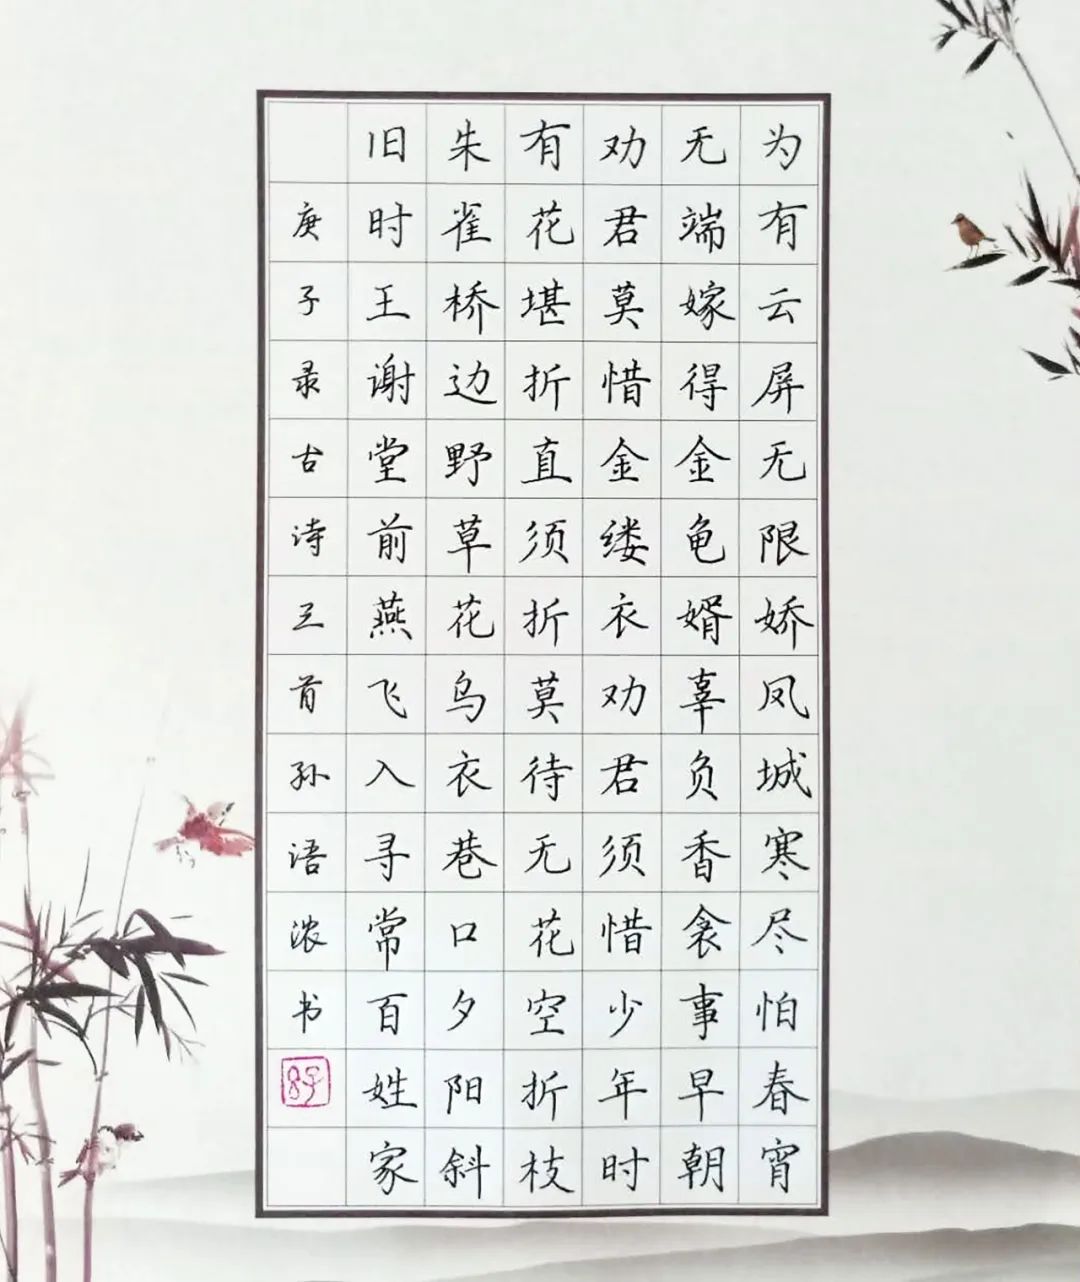 为有云屏无限娇凤城寒尽怕春宵
无端嫁得金龟婿辜负香衾事早朝
劝君莫惜金缕衣劝君须惜少年时
有花堪折直须折莫待无花空折枝
朱雀桥边野草花乌衣巷口夕阳斜
旧时王谢堂前燕飞入寻常百姓家
庚子录古诗三首孙语浓书